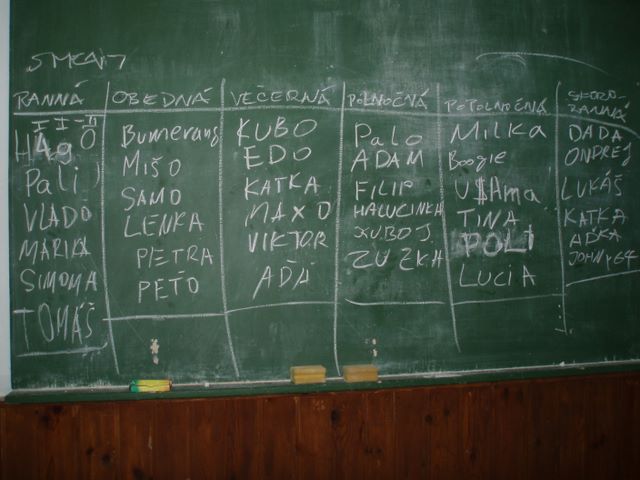 RANNÁ OBEDNÁ VEČERNÁ POLNOČNÁ POPOLNOČNÁ SKORO-RANNÁ
HAgO Bumerang KUBO Palo MILKA DADA
Pali MIŠO EDO ADAM Boogie ONDREJ
VLADO SAMO KATKA FILIP U$Ama LUKÁŠ
MARIKA LENKA MAXO HALUCINKA TINA KATKA
SIMONA PETRA VIKTOR KUBO J. POLI AĎKA
TOMÁŠ PEŤO ZUZKA LUCIA JOHNY64